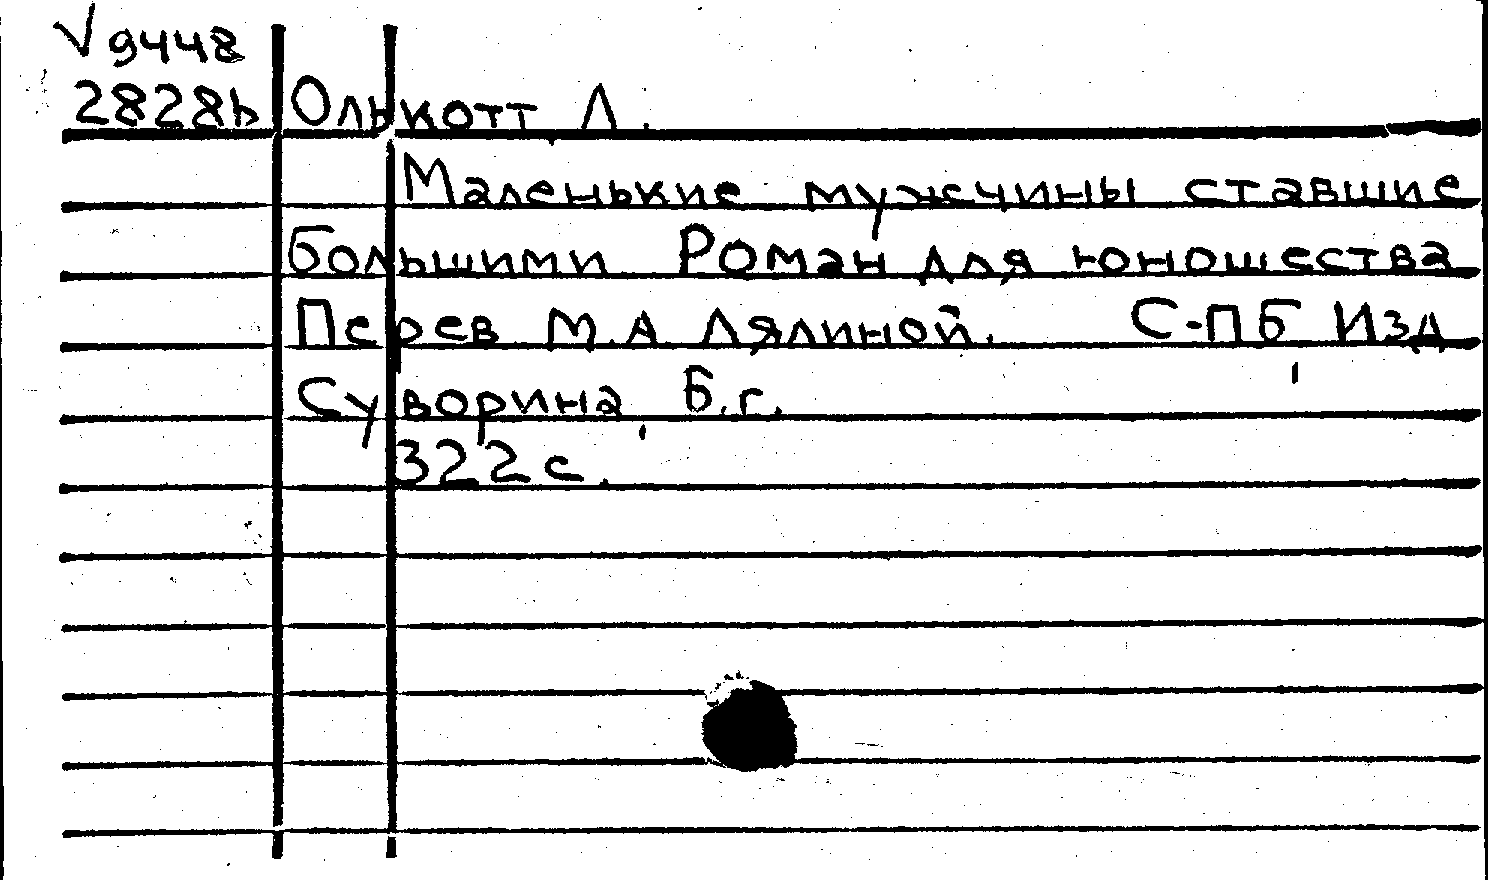 V 9448
2828b Олькотт, Л.
Маленькие мужчины ставшие
большими Роман для юношества
Перев М.А. Лялиной. С-ПБ, Изд
Суворина, Б.г.
322 с.